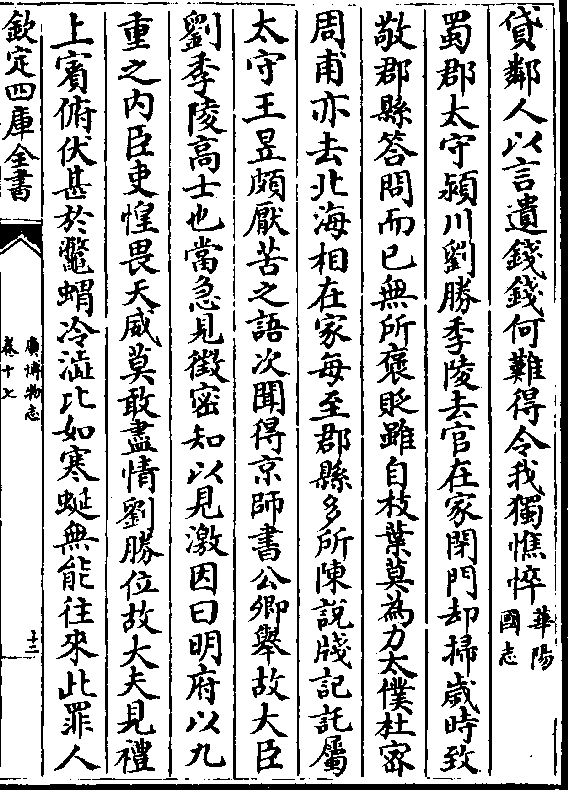 貸鄰人以言遺錢錢何難得令我獨憔悴華陽
國志
蜀郡太守潁川劉勝季陵去官在家閉門却掃歲時致
敬郡縣答問而已無所褒貶雖自枝葉莫為力太僕杜密
周甫亦去北海相在家每至郡縣多所陳說牋記託屬
太守王昱頗厭苦之語次聞得京師書公卿舉故大臣
劉季陵高士也當急見徵密知以見激因曰明府以九
重之內臣吏惶畏天威莫敢盡情劉勝位故大夫見禮
上賓俯伏甚於鼈蝟冷澁比如寒蜒無能往來此罪人
欽定四庫全書
廣博物志
卷十七
十三